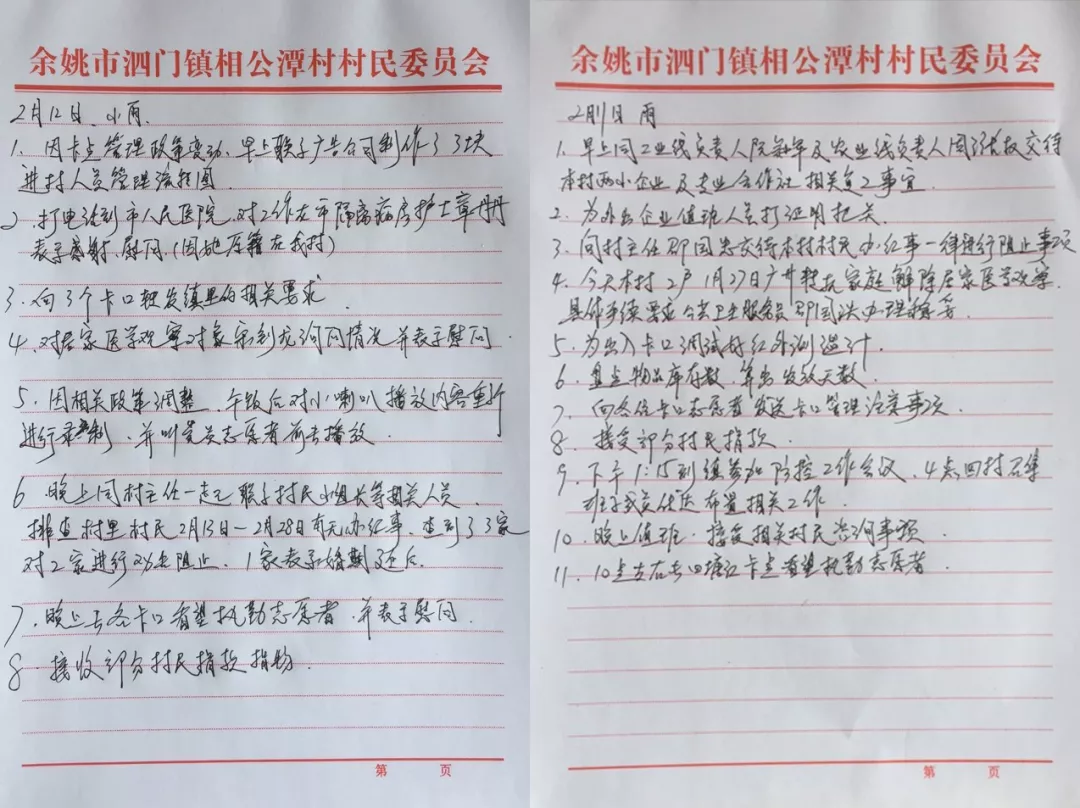 余姚市泗门镇相公潭村村民委员会
2月12日、小雨.
1、因卡点管理政策变动、早上联系广告公司制作了3块
进村人员管理流程图.
2、打电话到市人民医院、对工作在市隔离病房护士章丹丹
表示感谢、慰问、(因她原籍在我村)
3、向3个卡口转发镇里的相关要求
4、对居家医学观察对象家询问情况并表示慰问.
5、因相关政策调整、午饭后对小喇叭播放内容重新
进行录制、并叫党员志愿者前去播放.
6、晚上同村主任一起联系村民小组长等相关人员、
排查村里村民2月13日—2月28日有无办红事、查到了3家
对2家进行劝阻、1家表示婚期延后.
7、晚上去各卡口看望执勤志愿者、并表示慰问.
8、接收部分村民捐款捐物.
第 页
余姚市泗门镇相公潭村村民委员会
雨
1、早上同工业线负责人及农业线负责人周交待
本村两小企业及专业合作社相关复工事宜
2、为外出企业值班人员打证明把关.
3、同村主任邵国忠交待本村村民办红事一律进行阻止事项
4、今天本村2户1月27日家庭解除居家医学观察
具体手续要求卫生服务员办理
5、为出入卡口调试好红外测温计.
6、盘点物品库存数、算出发放天数.
7、向各位卡口志愿者发送卡口管理注意事项.
8、接受部分村民捐款.
9、下午1:15到镇参加防控工作会议、4点回村召集
班子成员传达布置相关工作.
10、晚上值班、接受相关村民咨询事项
11、10点左右去四塘江卡点看望执勤志愿者
第 页